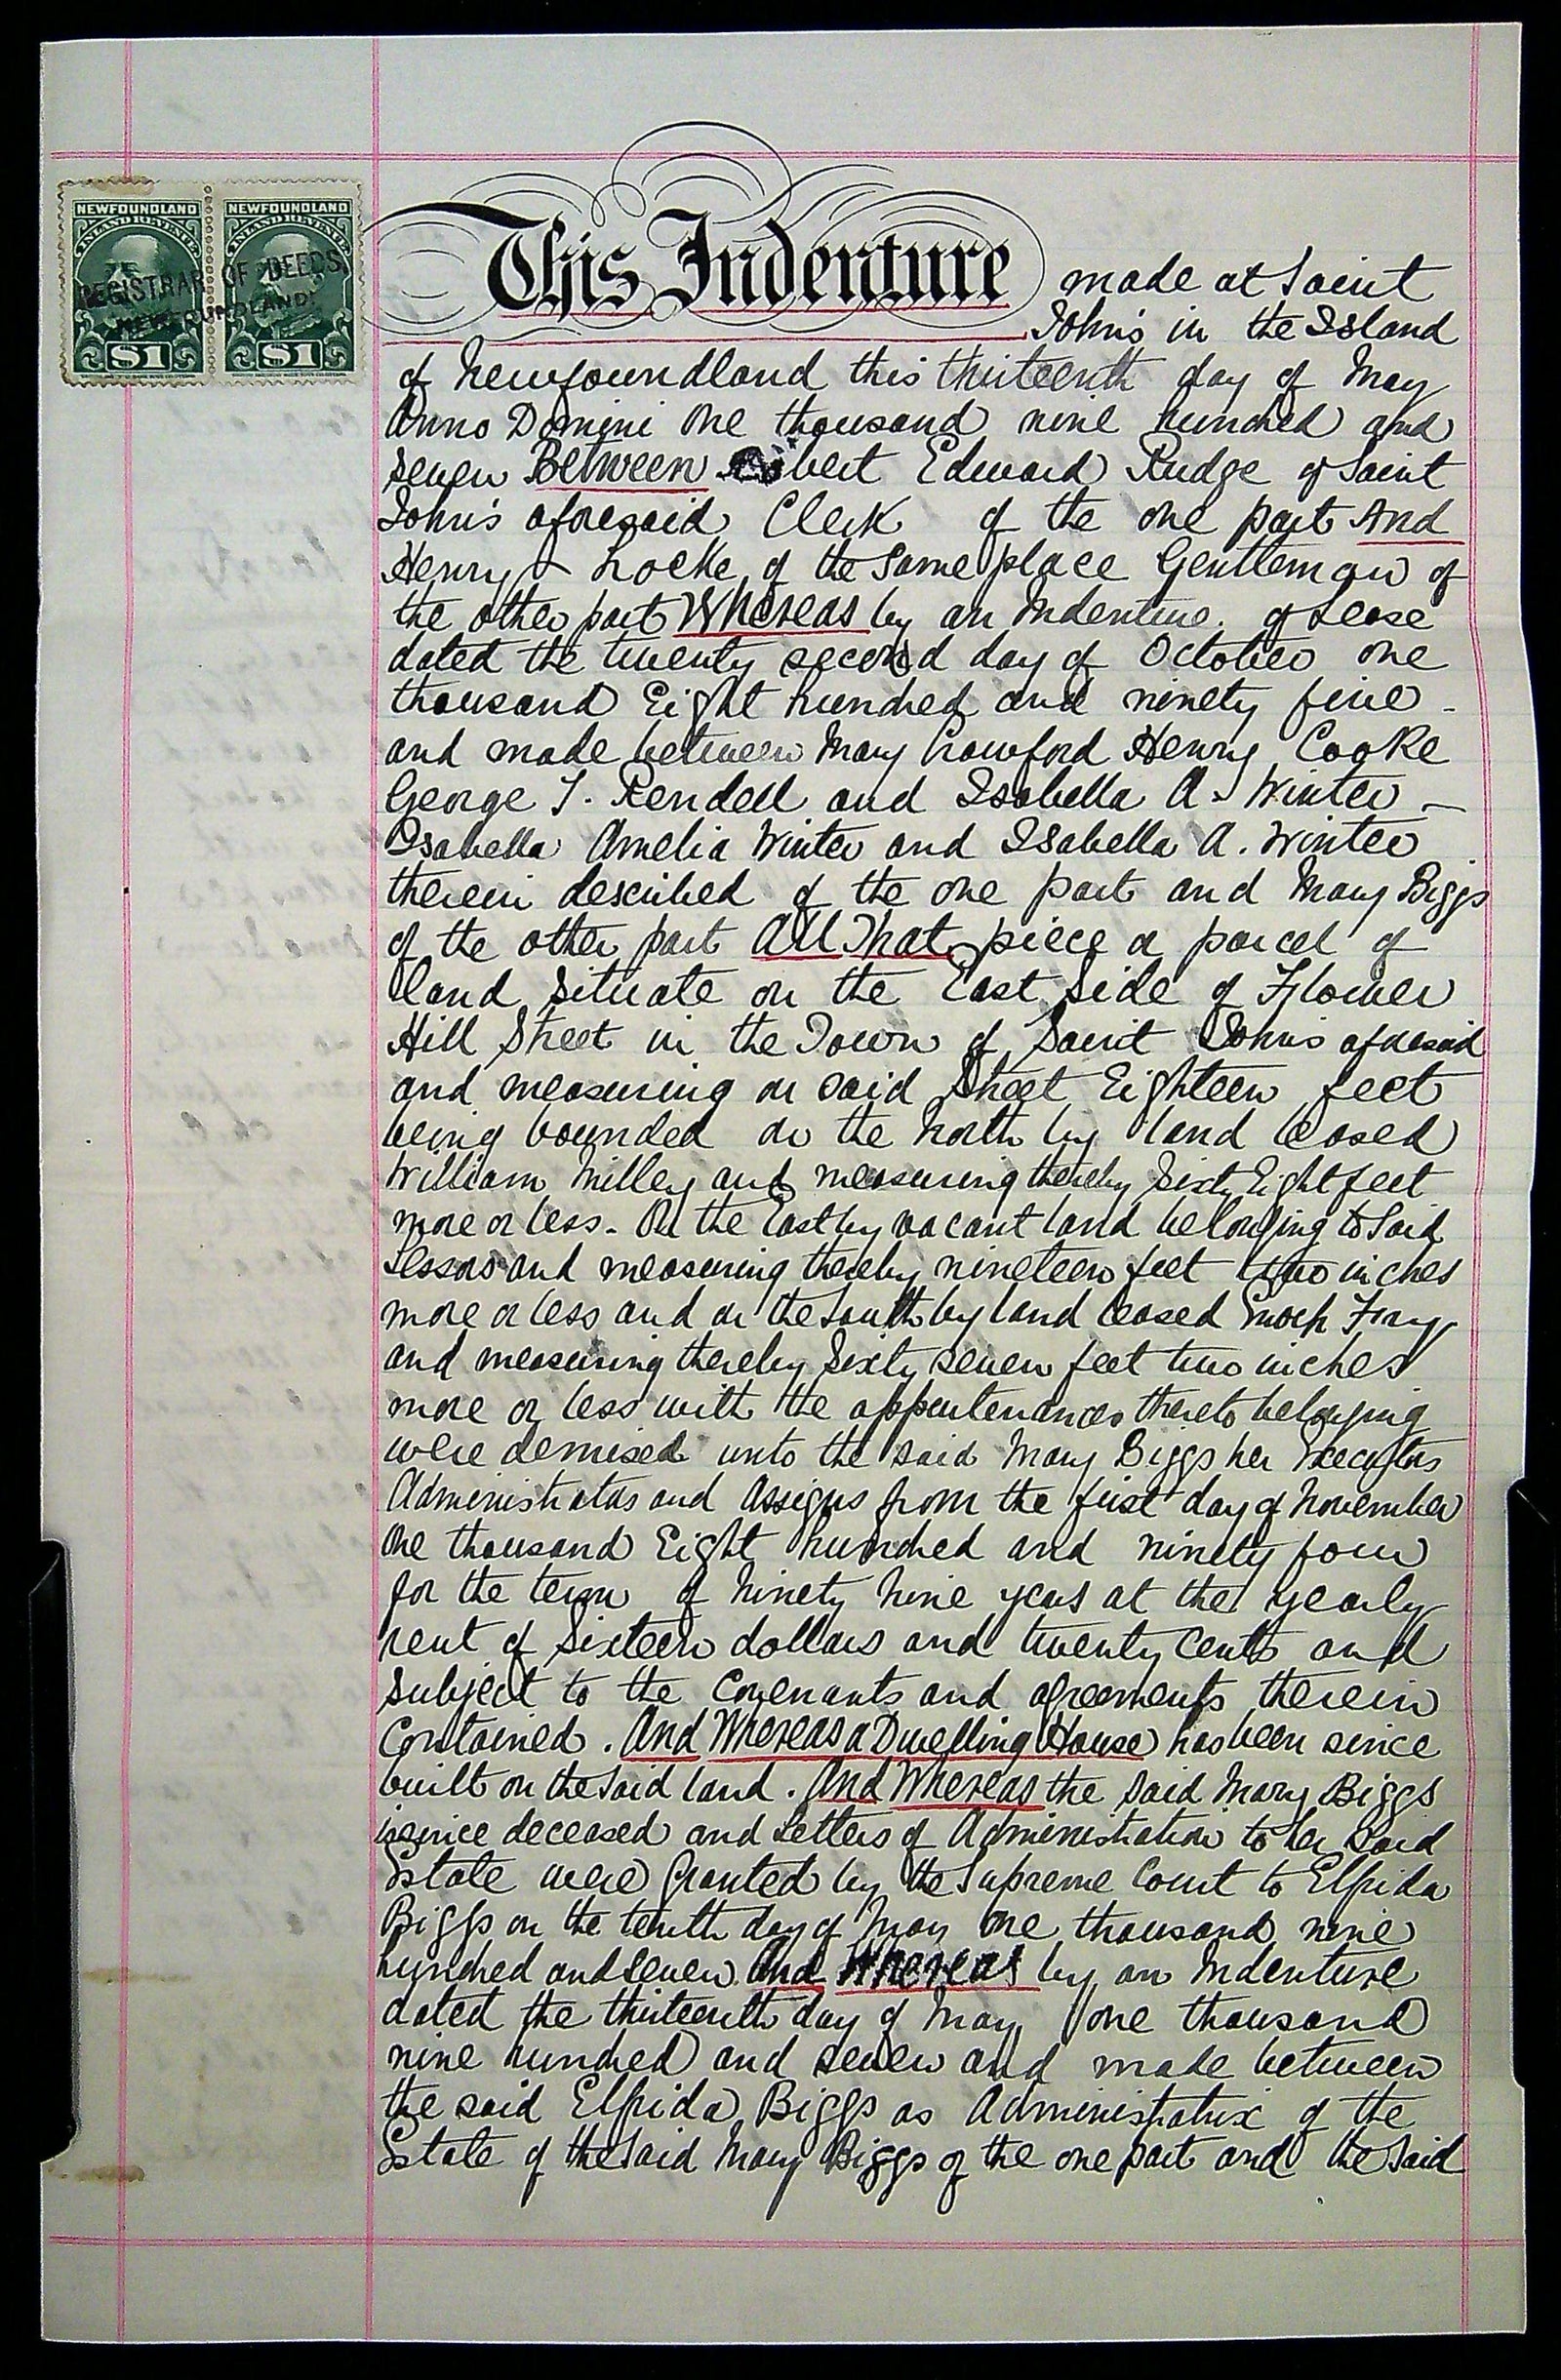 NEWFOUNDLAND NEWFOUNDLAND
INLAND REVENUE INLAND REVENUE
REGISTRAR OF DEEDS.
NEWFOUNDLAND.
$1 $1
This Indenture made at Saint
John's in the Island
of Newfoundland this thirteenth day of May
Anno Domini One thousand nine hundred and
seven Between Robert Edward Rudge of Saint
John's aforesaid Clerk of the one part And
Henry Locke of the same place Gentleman of
the other part Whereas by an Indenture of Lease
dated the twenty second day of October one
thousand Eight hundred and ninety five
and made between Mary Crawford Henry Cooke
George T. Rendell and Isabella A. Winter
Isabella Amelia Winter and Isabella A. Winter
therein described of the one part and Mary Biggs
of the other part All That piece or parcel of
land situate on the East side of Flower
Hill Street in the Town of Saint John's aforesaid
and measuring on said Street Eighteen feet
being bounded on the North by land leased
William Milley and measuring thereby Sixty Eight feet
more or less. On the East by vacant land belonging to said
Lessors and measuring thereby nineteen feet two inches
more or less and on the South by land leased Enoch
and measuring thereby Sixty seven feet two inches
more or less with the appurtenances thereto belonging
were demised unto the said Mary Biggs her Executors
Administrators and Assigns from the first day of November
One thousand Eight hundred and ninety four
for the term of Ninety Nine years at the yearly
rent of Sixteen dollars and twenty cents and
subject to the Covenants and agreements therein
Contained. And Whereas a Dwelling House has been since
built on the said land. And Whereas the said Mary Biggs
is since deceased and Letters of Administration to her said
Estate were Granted by the Supreme Court to Elfrida
Biggs on the tenth day of May One thousand nine
hundred and seven And Whereas by an Indenture
dated the thirteenth day of May one thousand
nine hundred and seven and made between
the said Elfrida Biggs as Administratrix of the
Estate of the said Mary Biggs of the one part and the said